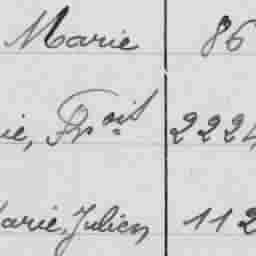 Marie 86
ie, Frçois 2224
Marie, Julien 112